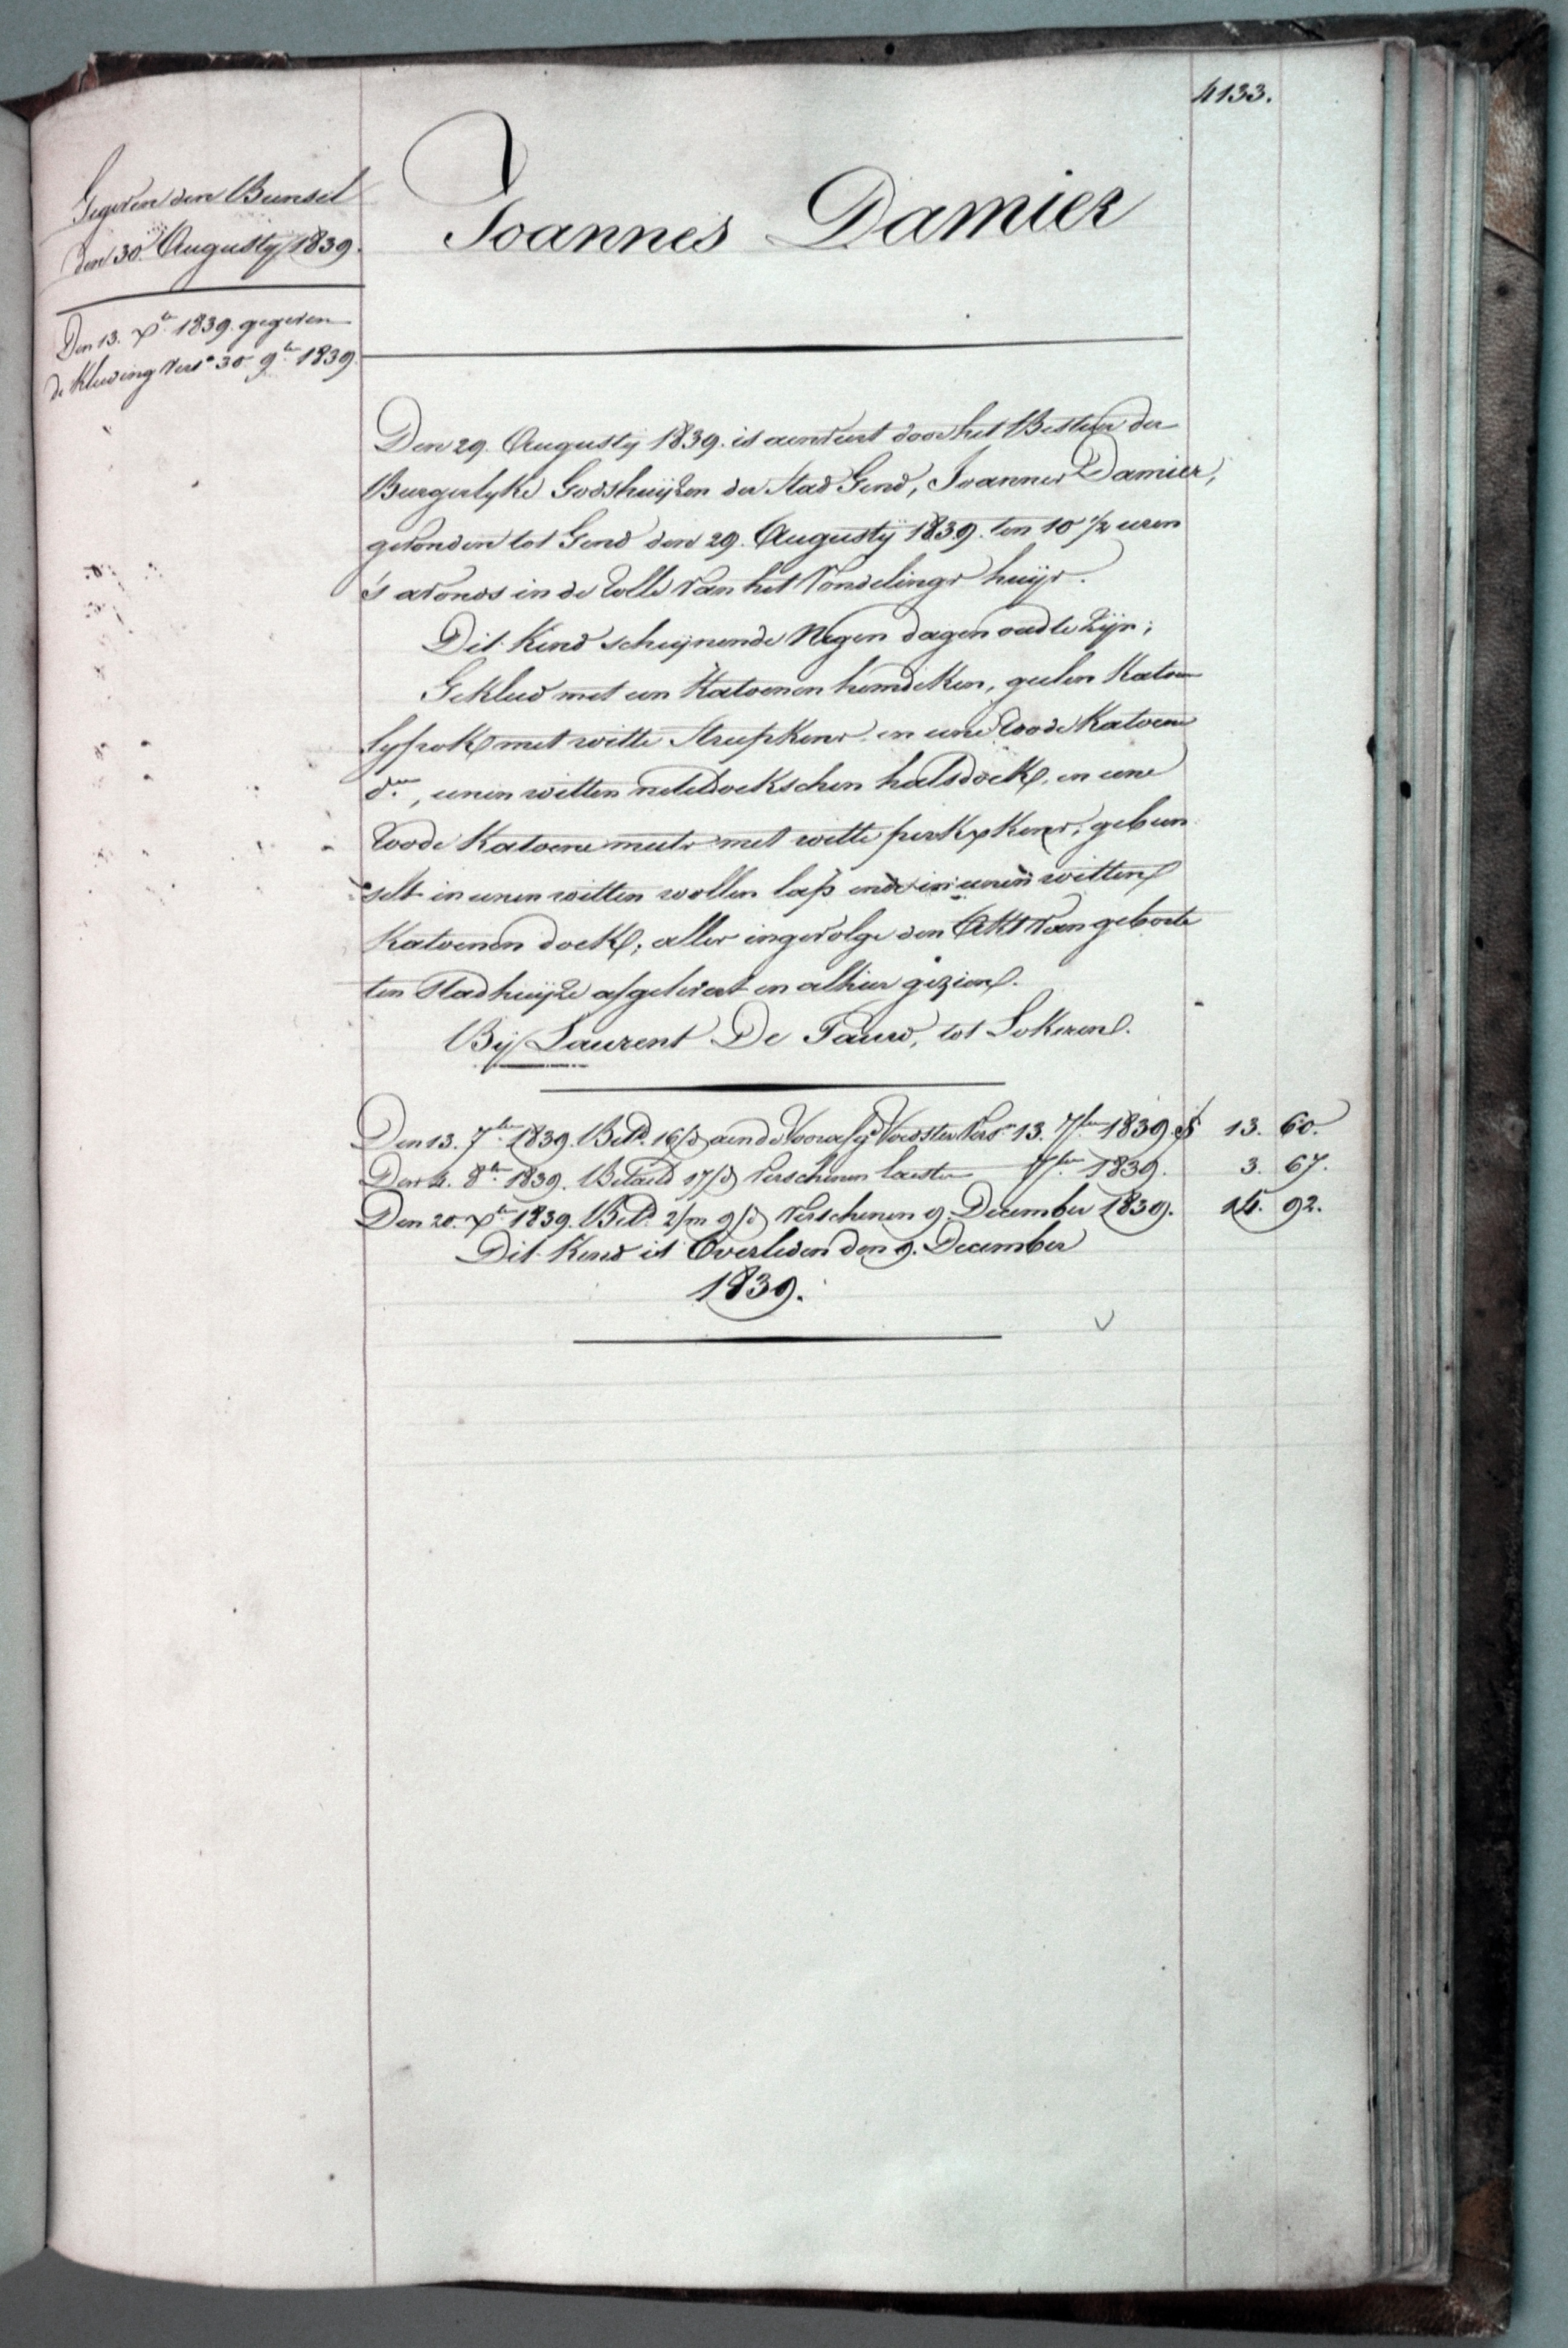 4133.
Gegeven den Bunsel
den 30. Augustij 1839.
Den 13. Xber 1839. gegeven
de Kleeding Versn 30 9ber 1839.
Joannes Damier
Den 29. Augustij 1839. is aenveert door het Bestuer der
Burgerlyke Godshuijzen der Stad Gend, Joannes Damier,
gevonden tot Gend den 29. Augustij 1839. ten 10 1/2 uren
's avonds in de Rolle van het Vondelings huijs.
Dit Kind schijnende Negen dagen oud te Zijn;
Gekleed met een Katoenen hemdeken, geelen Katoen
Lyfrok met witte Streepkens en eene Roode Katoene
do, eenen witten neteldoekschen halsdoek, en eene
Roode Katoene muts met witte perkxkens, gebun
selt in eenen witten wollen lap ende in eenen witten
Katoenen doek; alles ingevolge den Akt van geboorte
ten Stadhuijze afgelevert en alhier gezien.
Bij Laurent De Pauw, tot Lokeren.
Den 13. 7ber 1839. Betd. 16/d aen de Voorafge Voedster Versn 13. 7ber 1839. f 13. 60.
Den 4. 8ber 1839. Betaeld 17/d Verschenen laesten 7ber 1839. 3. 67.
Den 20. Xber 1839. Betd. 2/m 9/d Verschenen 9. December 1839. 14. 92.
Dit Kind is Overleden den 9. December
1839.